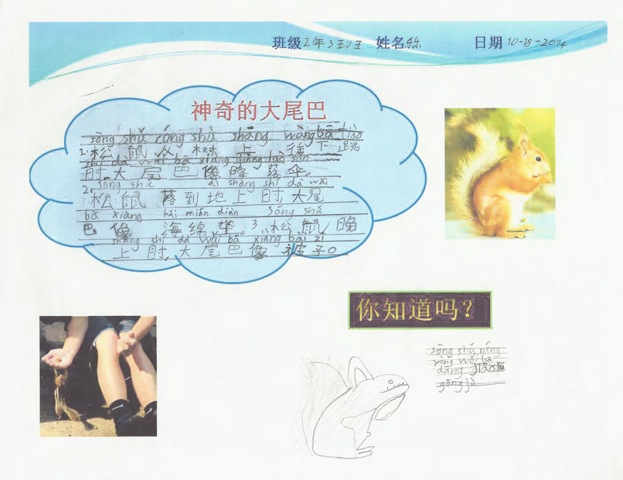 班级2年3班 姓名乐乐 日期10-28-2014
神奇的大尾巴
sōng shǔ cóng shù shàng wàng
1.松鼠从树上往下跳
shí dà wěi bā xiàng jiàng luò sǎn
时,大尾巴像降落伞。
sōng shǔ dì shàng shí dà wěi
2.松鼠落到地上时大尾
bā xiàng hǎi mián diàn sōng shǔ
巴像海绵垫。3.松鼠晚
shàng shí dà wěi bā xiàng bèi zi
上时,大尾巴像被子。
你知道吗?
sōng shǔ néng
yòng wěi bā
dāng
gōng jù